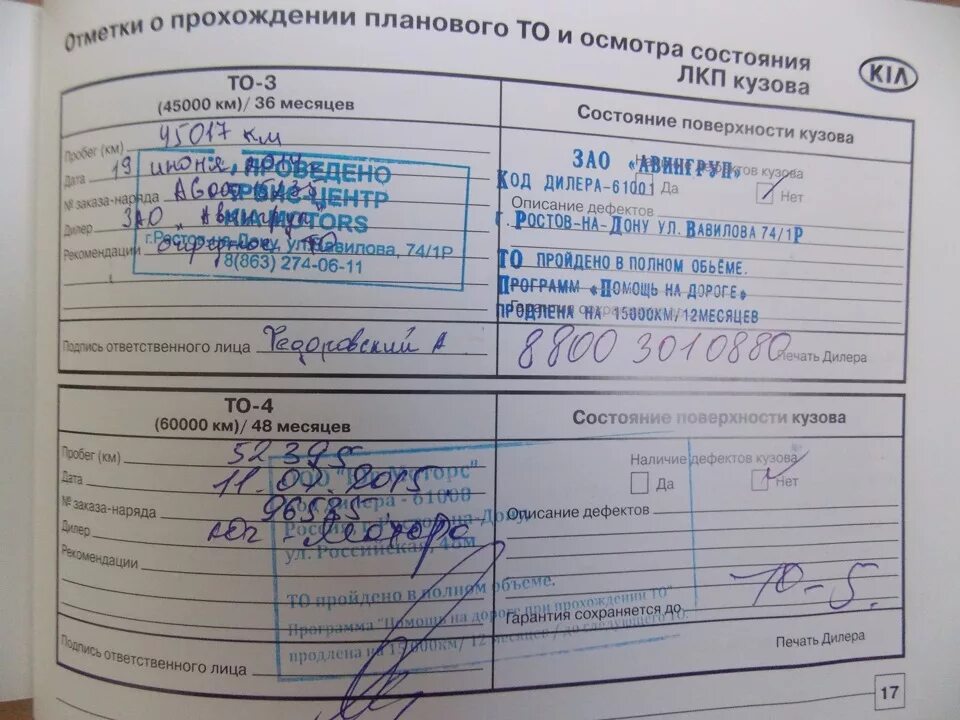 Отметки о прохождении планового ТО и осмотра состояния
ЛКП кузова
KIA
ТО-3
(45000 км)/ 36 месяцев
Пробег (км) 45017 км
Дата 19 июня
№ заказа-наряда
Дилер ЗАО "Авингруп"
Рекомендации
ПРОВЕДЕНО
KIA MOTORS
г.Ростов-на-Дону, ул. Вавилова, 74/1Р
8(863) 274-06-11
Подпись ответственного лица Федоровский А
Состояние поверхности кузова
ЗАО "АВИНГРУП"
дефектов кузова
КОД ДИЛЕРА-61001
Да
Нет
Описание дефектов
г. РОСТОВ-НА-ДОНУ УЛ. ВАВИЛОВА 74/1Р
ТО ПРОЙДЕНО В ПОЛНОМ ОБЬЕМЕ.
ПРОГРАММ «ПОМОЩЬ НА ДОРОГЕ»
ПРОДЛЕНА НА 15000КМ/12МЕСЯЦЕВ
8 800 3010880
Печать Дилера
ТО-4
(60000 км)/ 48 месяцев
Пробег (км) 52395
Дата 11.07.2015
№ заказа-наряда 96585
Дилер
Рекомендации
Моторс"
дилера - 61008
ул. Российская, 48м
ТО пройдено в полном объеме.
Программа "Помощь на дороге при прохождении ТО"
продлена на 15 000км/ 12 месяцев / до следующего ТО.
Подпись ответственного лица
Состояние поверхности кузова
Наличие дефектов кузова
Да
Нет
Описание дефектов
Гарантия сохраняется до ТО-5.
Печать Дилера
17